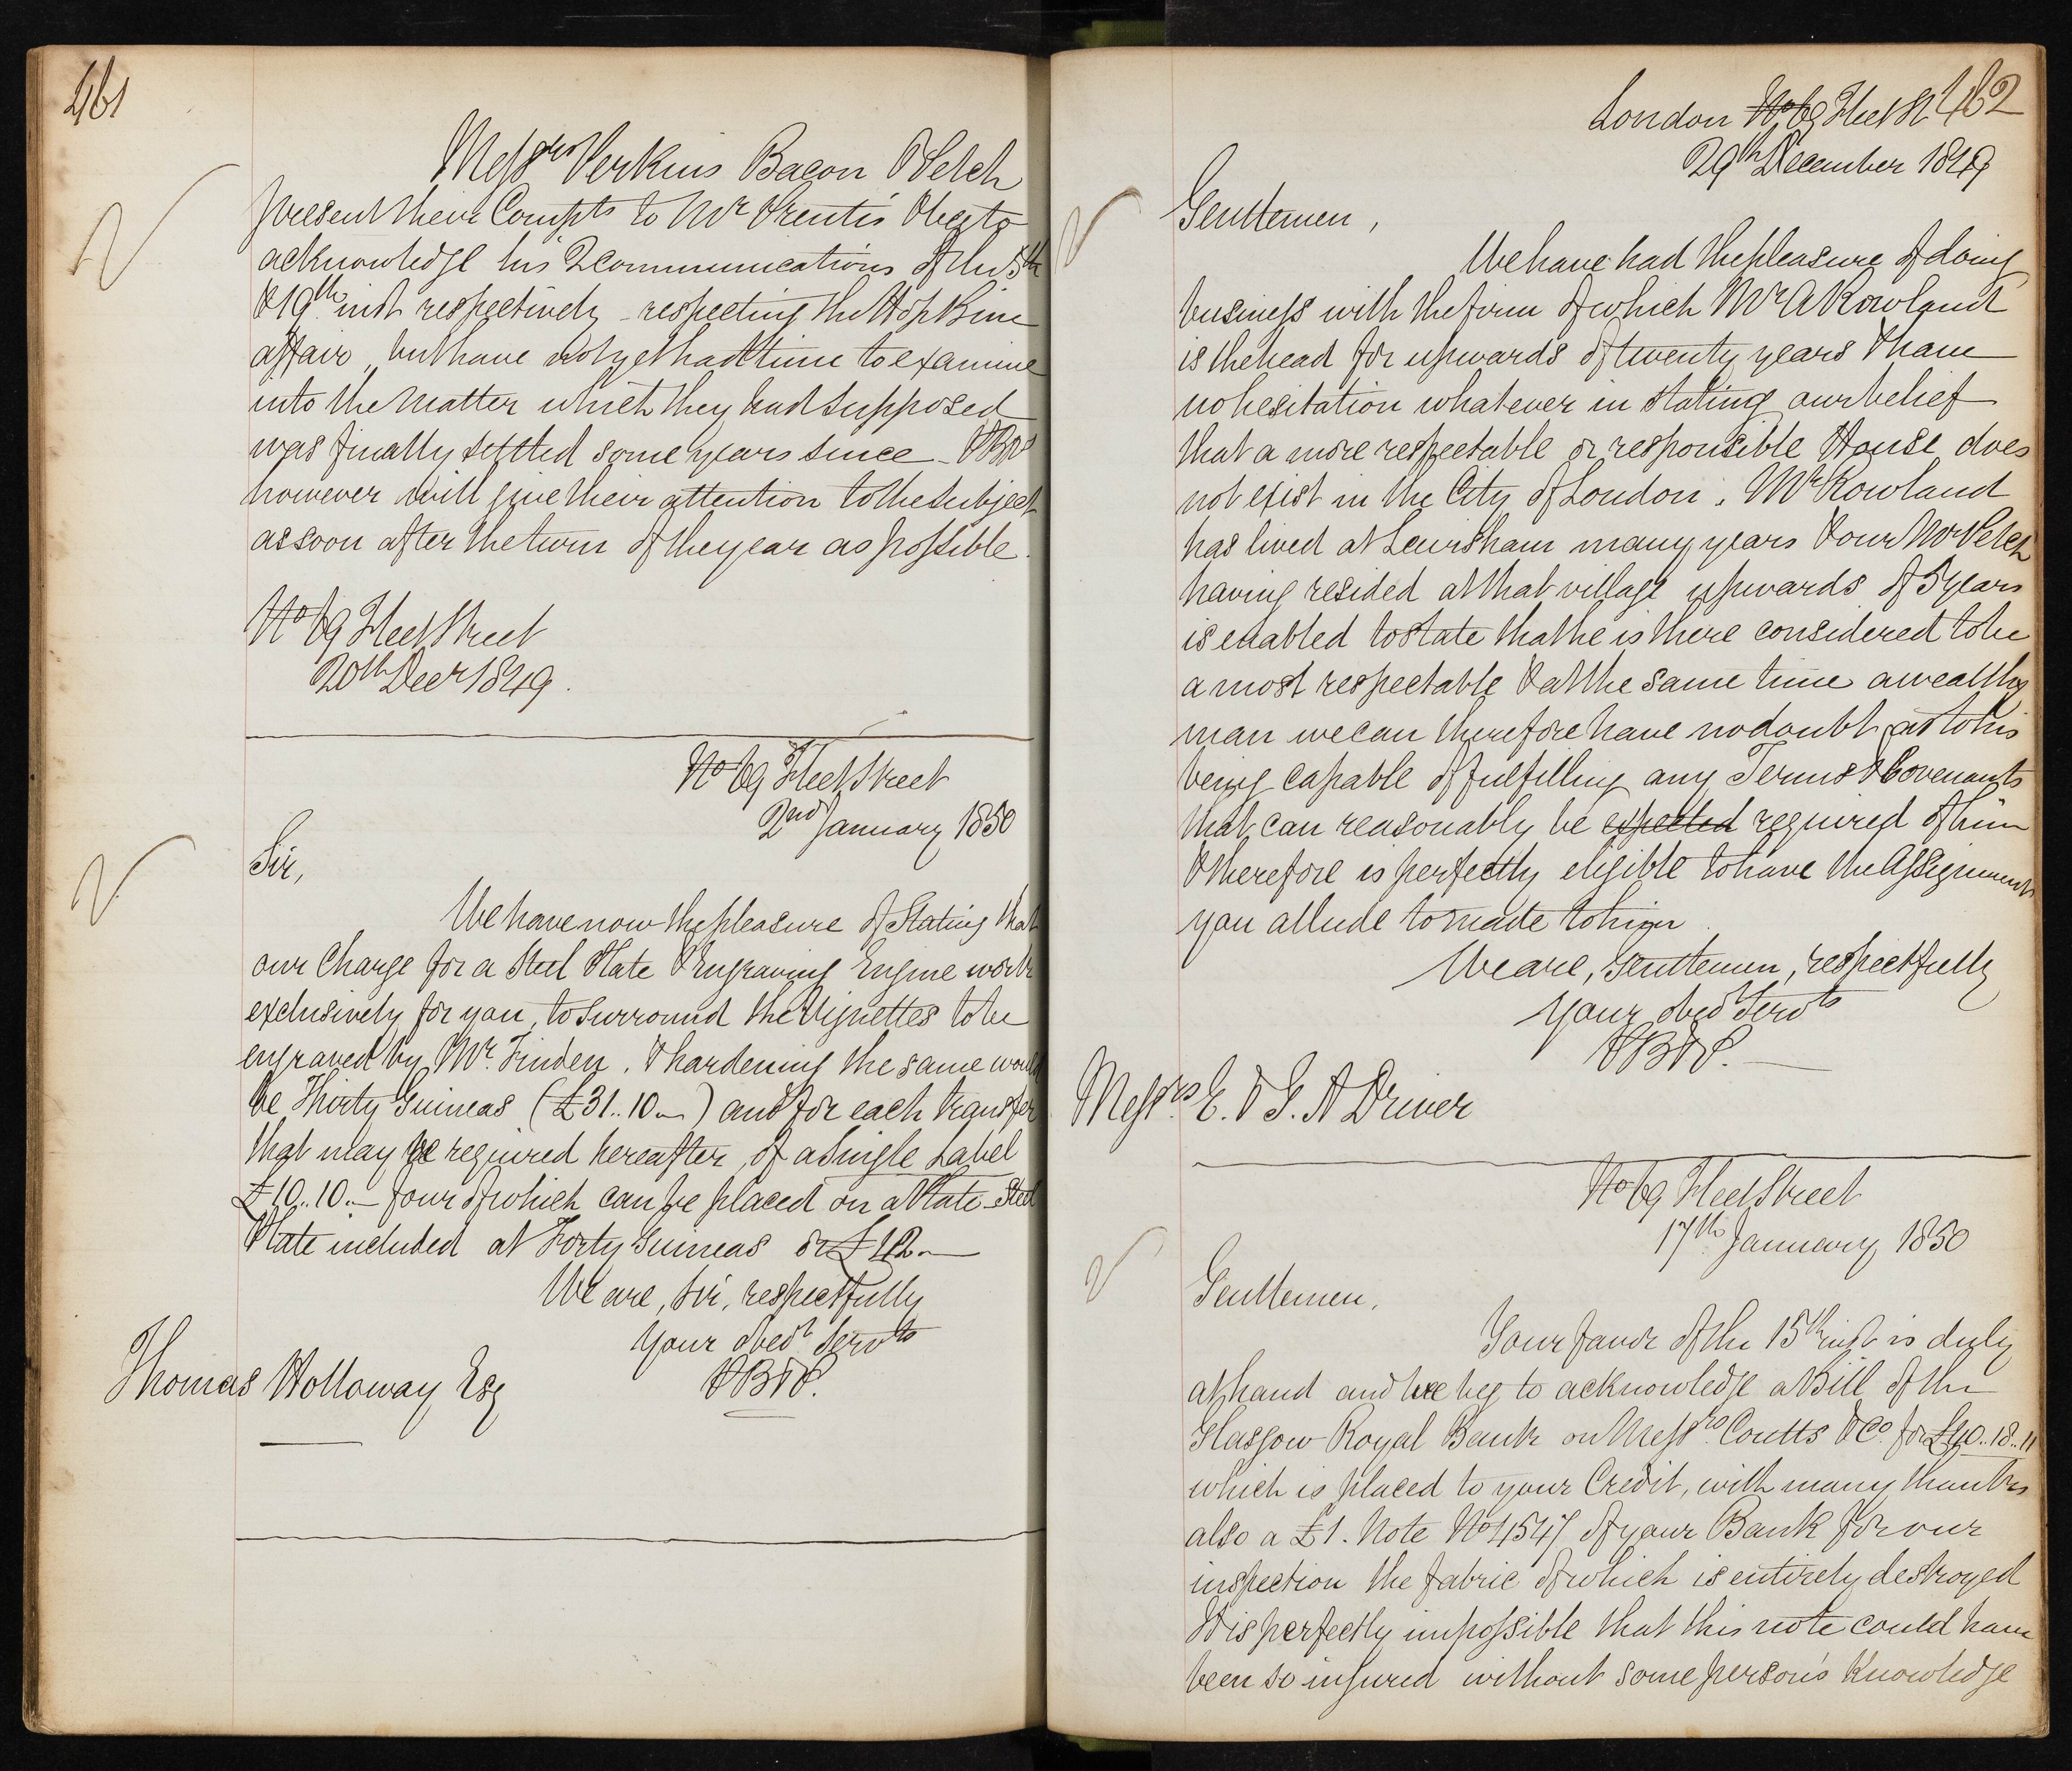 461
Messrs Perkins Bacon & Petch
present their Compts to Mr Prentis & beg to
acknowledge his 2 communications of the 5th
& 19th inst respectively - respecting the Hop Bine
affair, but have not yet had time to examine
into the Matter which they had supposed
was finally settled some years since - PB&P
however will give their attention to the subject
as soon after the turn of the year as possible.
No 69 Fleet Street
20th Decr 1849.
No 69 Fleet Street
2nd January 1850
Sir,
We have now the pleasure of Stating that
our Charge for a Steel Plate & Engraving Engine work
exclusively for you, to Surround the Vignettes to be
engraved by Mr. Finden. & hardening the same would
be Thirty Guineas (£31..10..-) and for each transfer
that may be required hereafter, of a Single Label
£10..10..- four of which can be placed on a Plate - Steel
Plate included at Forty Guineas or £42..-
We are, Sir, respectfully
Your obedt Servts
PB&P.
Thomas Holloway Esq
462
London No 69 Fleet St
29th December 1849
Gentlemen,
We have had the pleasure of doing
business with the firm of which Mr A Rowland
is the head for upwards of twenty years & have
no hesitation whatever in stating our belief
that a more respectable or responsible House does
not exist in the City of London. Mr Rowland
has lived at Lewisham many years & our Mr Petch
having resided at that village upwards of 5 years
is enabled to state that he is there considered to be
a most respectable & at the same time a wealthy
man we can therefore have no doubt as to his
being capable of fulfilling any Terms & Covenants
that can reasonably be expected required of him
& therefore is perfectly eligible to have the Assignments
you allude to made to him
We are, Gentlemen, respectfully
Your obedt Servts
PB&P.
Messrs E. & G. N Driver
No 69 Fleet Street
17th January 1850
Gentlemen,
Your favor of the 15th inst is duly
at hand and we beg to acknowledge a Bill of the
Glasgow Royal Bank on Messrs Coutts & Co. for £40..18..11
which is placed to your Credit, with many thanks
also a £1. Note No 4547 of your Bank for our
inspection the fabric of which is entirely destroyed
It is perfectly impossible that this note could have
been so injured without some person's Knowledge